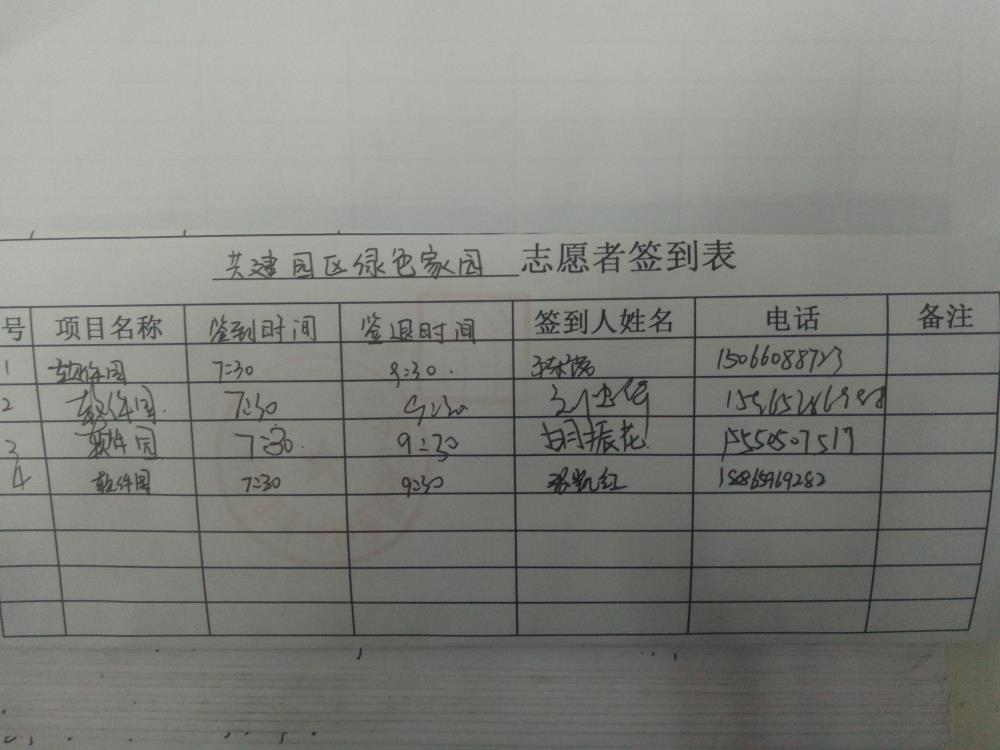 共建园区绿色家园 志愿者签到表
号 项目名称 签到时间 签退时间 签到人姓名 电话 备注
1 软件园 7:30 9:30. 15066088723
2 软件园. 7:30 9:30
3 软件园 7:30. 9:30 振花 15550507517
4 软件园 7:30 9:30 张凯红 15865969282